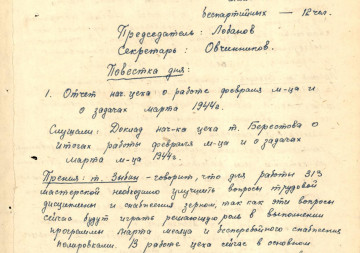 беспартийных — 12 чел.
Председатель: Лобанов
Секретарь: Овчинников.
Повестка дня:
1. Отчет нач. цеха о работе февраля м-ца и
о задачах марта 1944г.
Слушали: Доклад нач-ка цеха т. Берестова о
итогах работы февраля м-ца и о задачах
марта м-ца 1944г.
Прения: т. Зыбин - говорит, что для работы 313
мастерской необходимо улучшить вопросы трудовой
дисциплины и снабжения зерном, так как эти вопросы
сейчас будут играть решающую роль в выполнении
программы марта месяца и бесперебойного снабжения
полировками. В работе цеха сейчас в основном